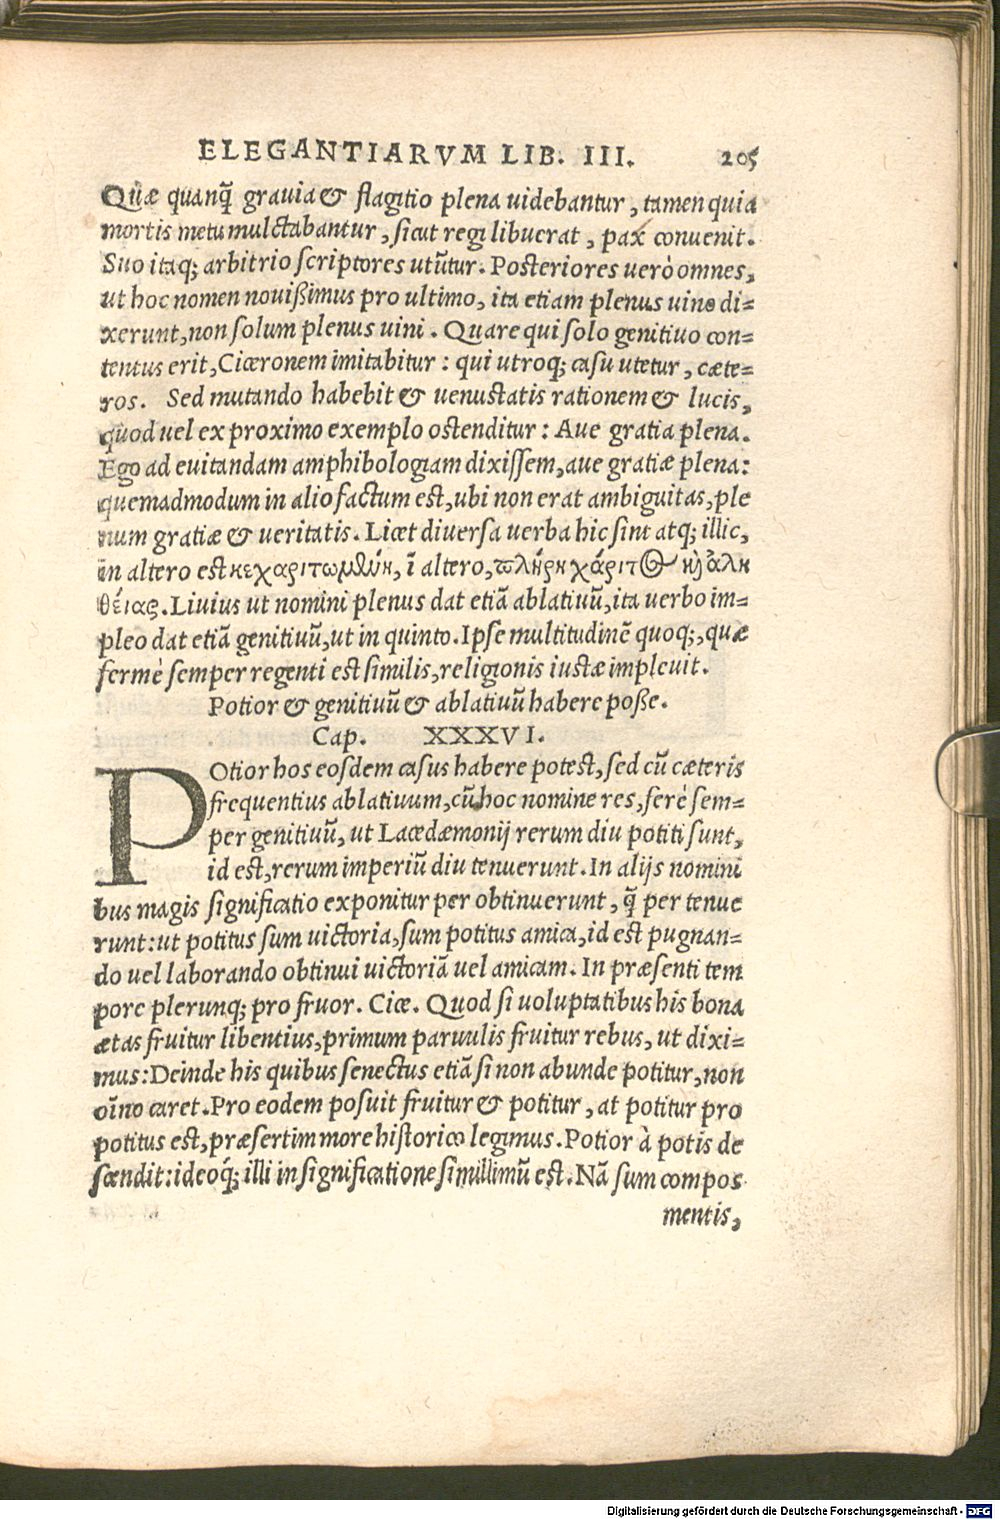 ELEGANTIARVM LIB. III. 205
Quæ quanq̃ grauia & flagitio plena uidebantur, tamen quia
mortis metu mulctabantur, sicut regi libuerat, pax conuenit.
Suo itaq; arbitrio scriptores utũtur. Posteriores uerò omnes,
ut hoc nomen nouißimus pro ultimo, ita etiam plenus uino di-
xerunt, non solum plenus uini. Quare qui solo genitiuo con-
tentus erit, Ciceronem imitabitur: qui utroq; casu utetur, cæte-
ros. Sed mutando habebit & uenustatis rationem & lucis,
quod uel ex proximo exemplo ostenditur: Aue gratia plena.
Ego ad euitandam amphibologiam dixissem, aue gratiæ plena:
quemadmodum in alio factum est, ubi non erat ambiguitas, ple
num gratiæ & ueritatis. Licet diuersa uerba hic sint atq; illic,
in altero est κεχαριτωμένη, ĩ altero, πλήρη χάριτος καὶ ἀλη
θείας. Liuius ut nomini plenus dat etiã ablatiuũ, ita uerbo im-
pleo dat etiã genitiuũ, ut in quinto. Ipse multitudinẽ quoq;, quæ
fermè semper regenti est similis, religionis iustæ impleuit.
Potior & genitiuũ & ablatiuũ habere poße.
Cap. XXXVI.
POtior hos eosdem casus habere potest, sed cũ cæteris
frequentius ablatiuum, cũ hoc nomine res, ferè sem-
per genitiuũ, ut Lacedæmonij rerum diu potiti sunt,
id est, rerum imperiũ diu tenuerunt. In alijs nomini
bus magis significatio exponitur per obtinuerunt, q̃ per tenue
runt: ut potitus sum uictoria, sum potitus amica, id est pugnan-
do uel laborando obtinui uictoriã uel amicam. In præsenti tem
pore plerunq; pro fruor. Cice. Quod si uoluptatibus his bona
ætas fruitur libentius, primum paruulis fruitur rebus, ut dixi-
mus: Deinde his quibus senectus etiã si non abunde potitur, non
oĩno caret. Pro eodem posuit fruitur & potitur, at potitur pro
potitus est, præsertim more historico legimus. Potior à potis de
scendit: ideoq́; illi in significatione simillimũ est. Nã sum compos
mentis,
Digitalisierung gefördert durch die Deutsche Forschungsgemeinschaft - DFG